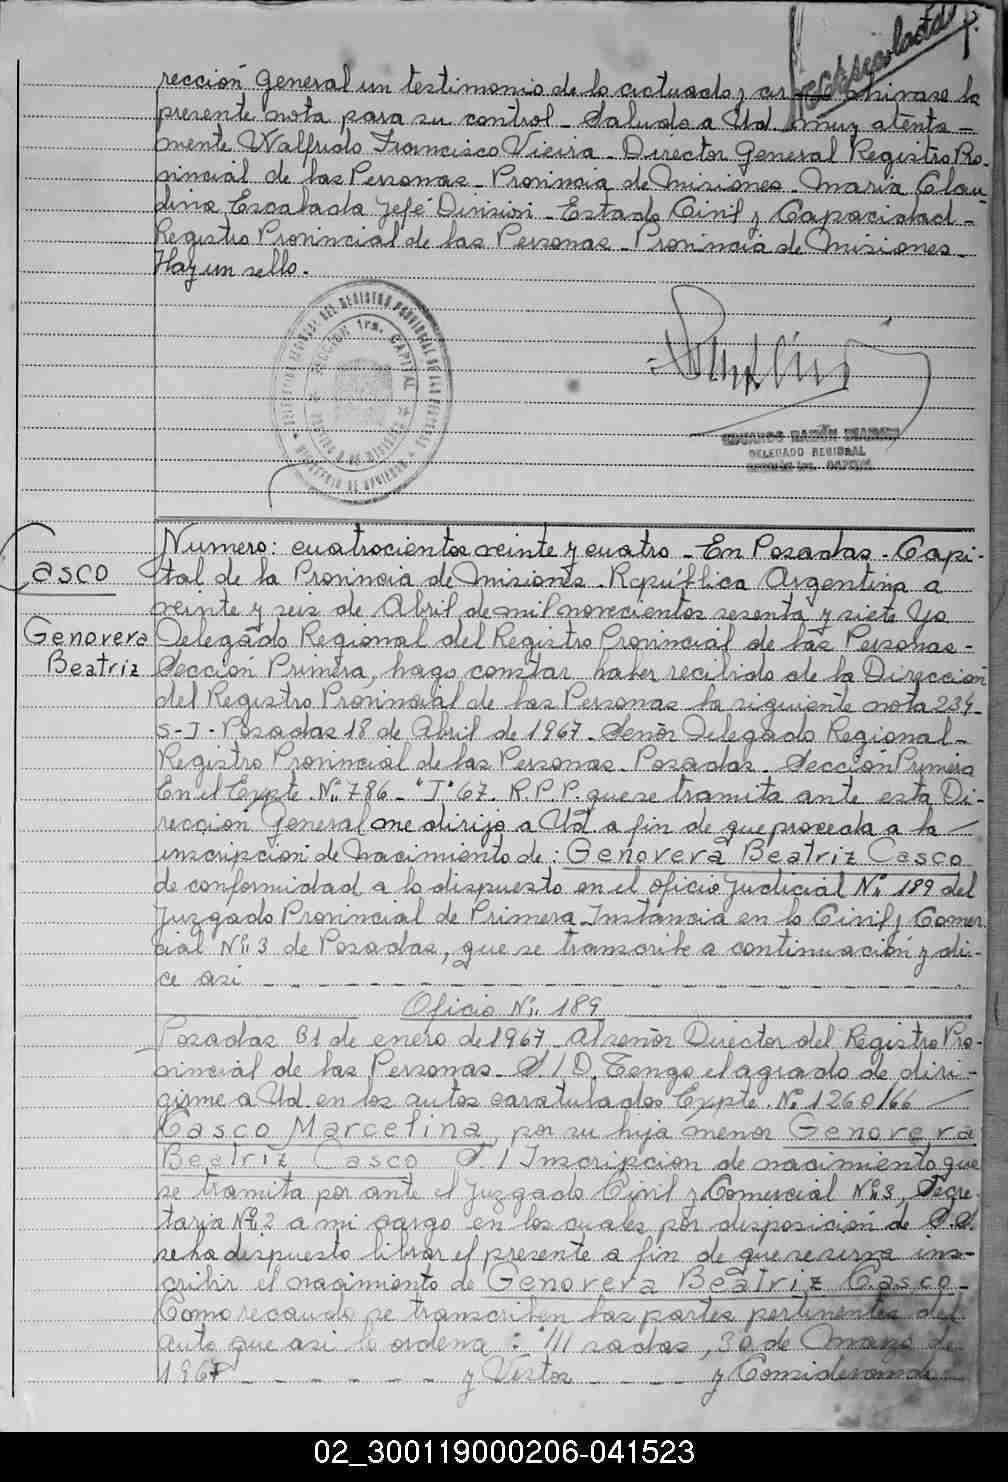 rección General un testimonio de lo actuado y archivase la
presente nota para su control - Saludo a Ud. muy atenta-
mente Walfrido Francisco Vieira - Director General Registro Pro-
vincial de las Personas - Provincia de Misiones - María Clau-
dina Escalada Jefe División - Estado Civil y Capacidad -
Registro Provincial de las Personas - Provincia de Misiones -
Hay un sello.
SECCION 1ra. CAPITAL
DELEGADO REGIONAL
SECCIÓN 1ra. CAPITAL
Casco
Genovera
Beatriz
Numero: cuatrocientos veinte y cuatro - En Posadas - Capi-
tal de la Provincia de Misiones - República Argentina a
veinte y seis de Abril de mil novecientos sesenta y siete Yo
Delegado Regional del Registro Provincial de las Personas -
Sección Primera, hago constar haber recibido de la Dirección
del Registro Provincial de las Personas la siguiente nota 234-
S-J - Posadas 18 de Abril de 1967 - Señor Delegado Regional -
Registro Provincial de las Personas - Posadas - Sección Primera
En el Expte Nº 786 - "I" 67. R.P.P. que se tramita ante esta Di-
rección General me dirijo a Ud. a fin de que proceda a la
inscripción de Nacimiento de: Genovera Beatriz Casco
de conformidad a lo dispuesto en el oficio Judicial Nº 189 del
Juzgado Provincial de Primera Instancia en lo Civil y Comer
cial Nº 3 de Posadas, que se transcribe a continuación y di-
ce asi
Oficio Nº 189
Posadas 31 de enero de 1967 - Al señor Director del Registro Pro-
vincial de las Personas - S/D. Tengo el agrado de diri-
girme a Ud. en los autos caratulados Expte. Nº 1260/66
Casco Marcelina, por su hija menor Genovera
Beatriz Casco S./ Inscripcion de nacimiento que
se tramita por ante el Juzgado Civil y Comercial Nº 3, Secre-
taria Nº 2 a mi cargo en los cuales por disposición de S.S.
se ha dispuesto librar el presente a fin de que se sirva ins-
cribir el nacimiento de Genovera Beatriz Casco -
Como recaudo se transcriben las partes pertinentes del
auto que asi lo ordena: "/// sadas, 30 de Marzo de
1967 - - - - - - y Vistos - - - - y Considerando
02_300119000206-041523